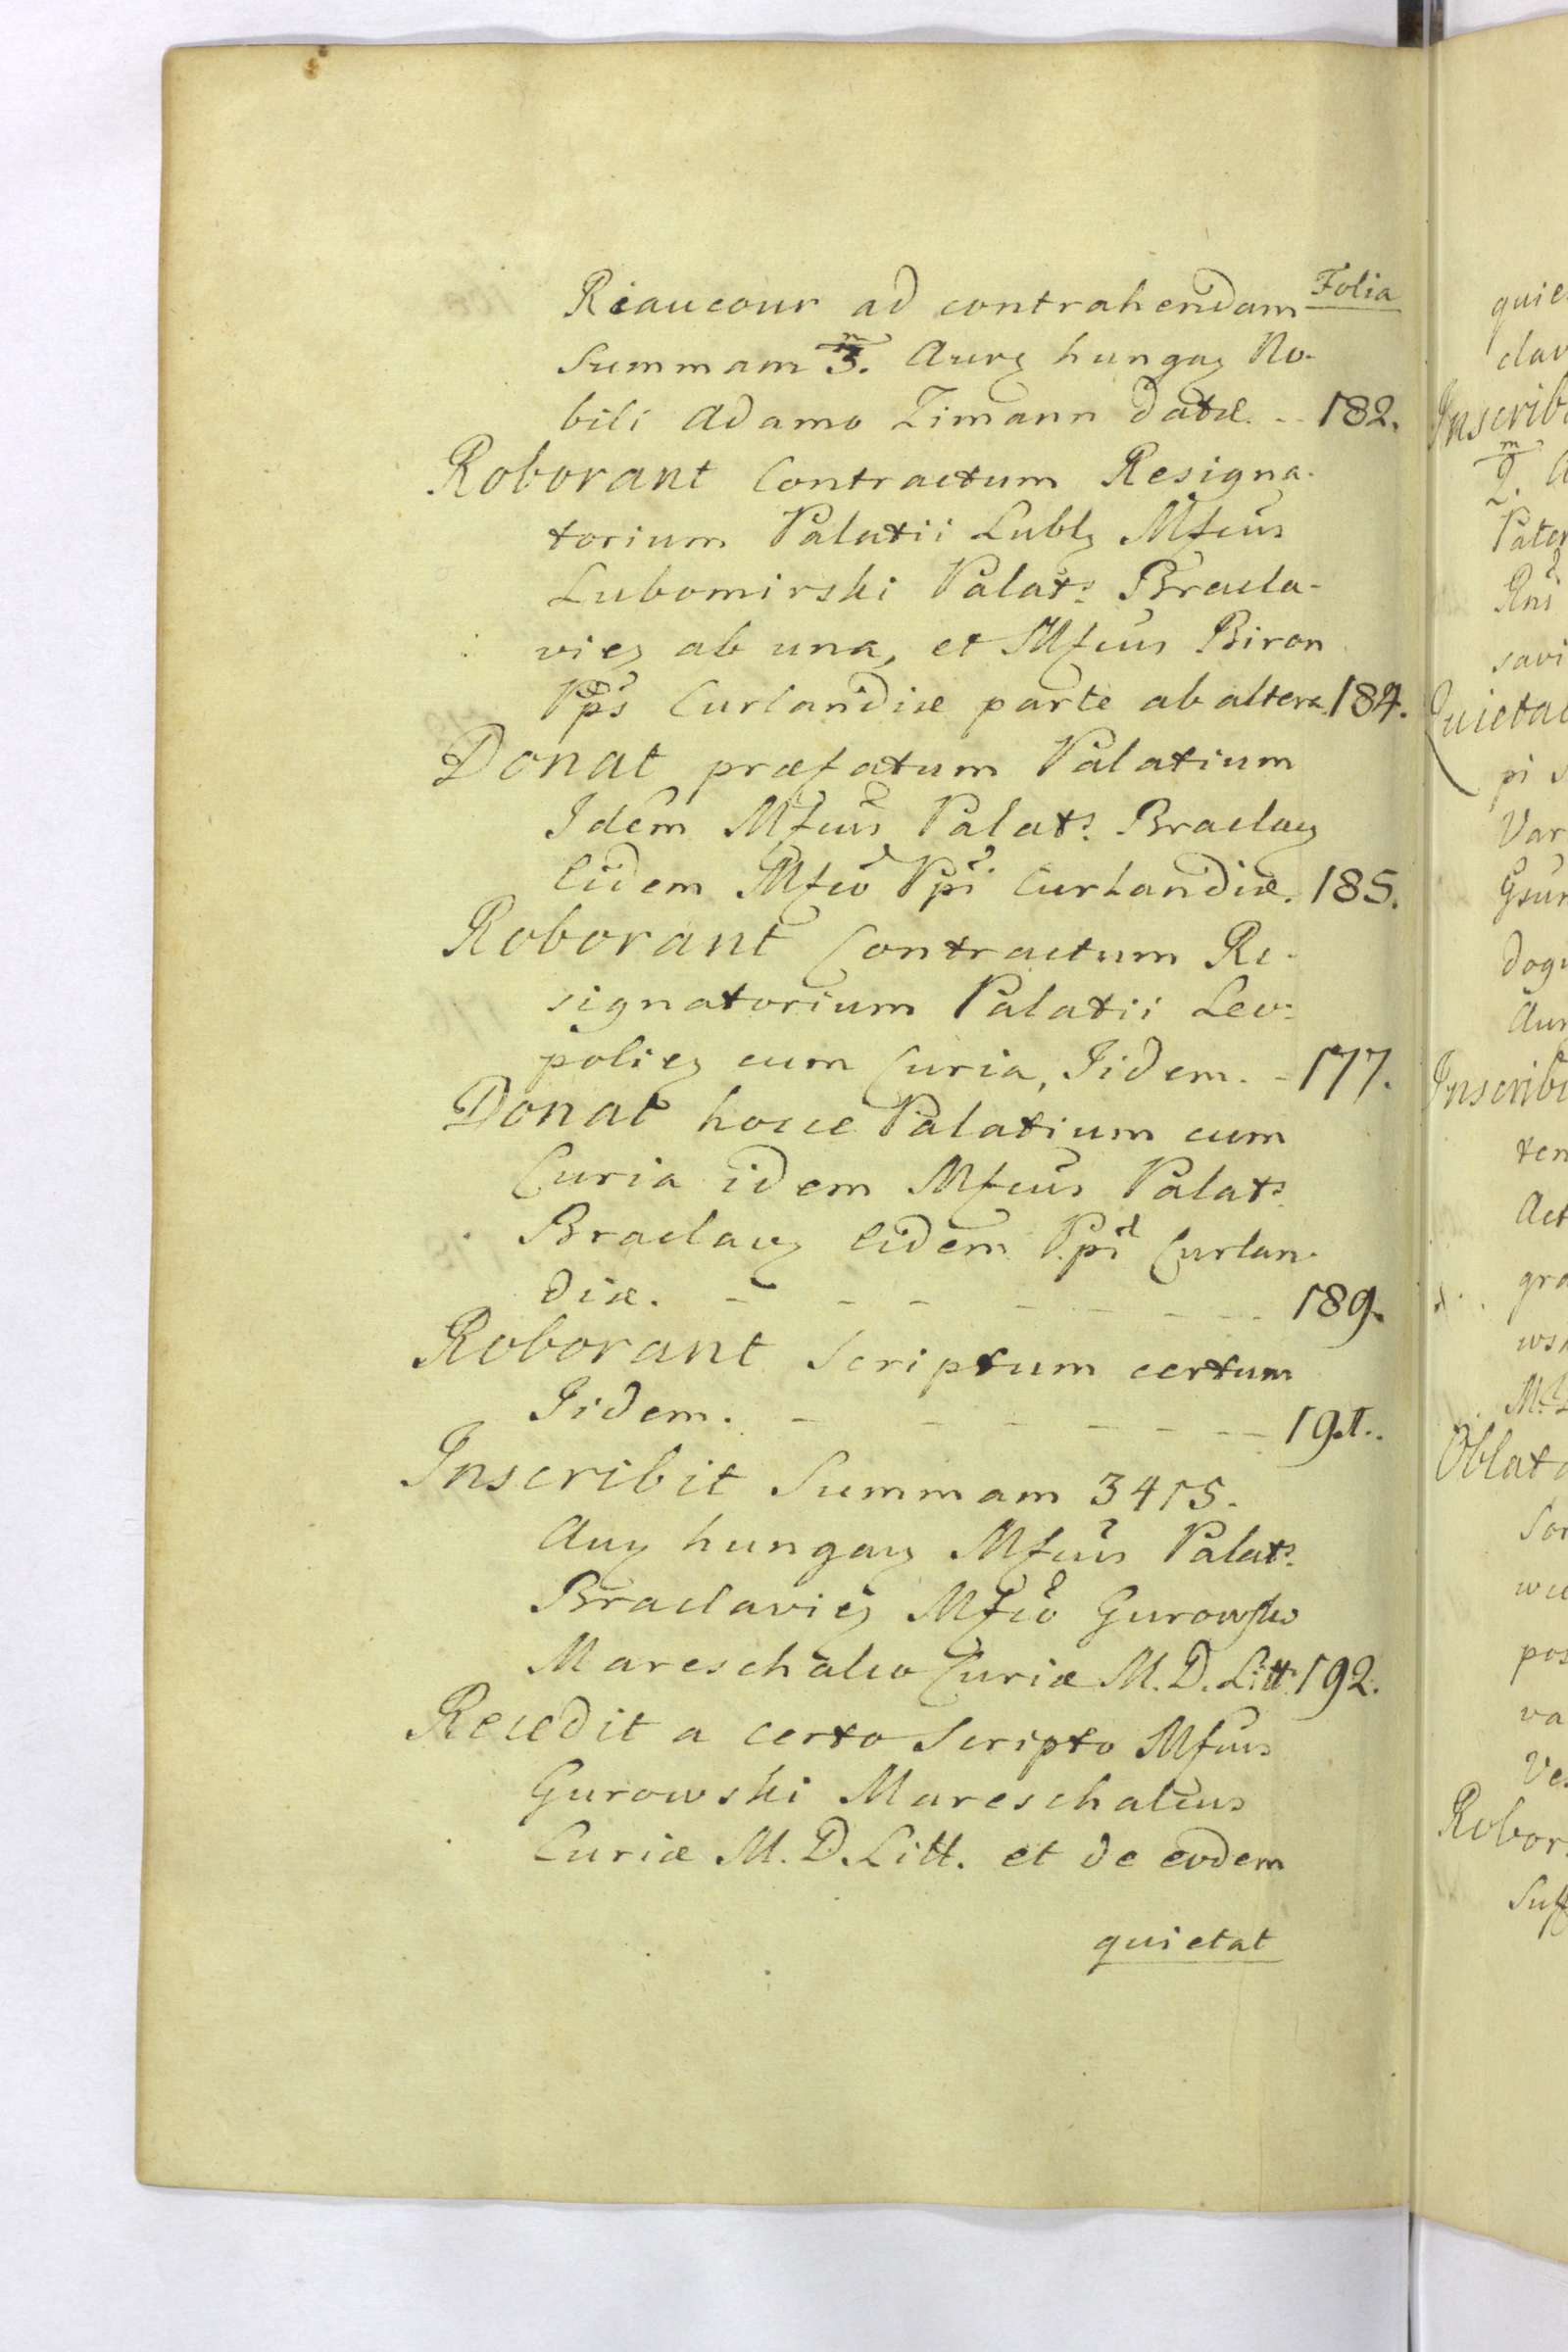 Folia
Riaucour ad contrahendam
Summam 3. Aurꝫ hungaꝫ No-
bili Adamo Zimann datæ. - - 182.
Roborant Contractum Resigna-
torium Palatii Lublꝫ Mfcus
Lubomirski Palats Bracla-
vieꝫ ab una, et Mfcus Biron
Pps Curlandiæ parte ab altera. 184.
Donat præfatum Palatium
Idem Mfcus Palats Braclaꝫ
Eidem Mfco Ppi Curlandiæ. 185.
Roborant Contractum Re-
signatorium Palatii Leo-
polieꝫ cum Curia, Iidem. - 177.
Donat hocce Palatium cum
Curia idem Mfcus Palats
Braclavꝫ Eidem Ppi Curlan-
diæ. - - - - - - - - 189.
Roborant Scriptum certum
Iidem. - - - - - - - 191.
Inscribit Summam 3415.
Auꝫ hungaꝫ Mfcus Palats
Braclavieꝫ Mfco Gurowsko
Mareschalco Curiæ M. D. Litt. 192.
Recedit a certo Scripto Mfcus
Gurowski Mareschalcus
Curiæ M. D. Litt. et de eodem
quietat
quie
clav
Inscrib
Pater
savi
Quietat
pi
Var
dogi
Inscrib
ten
Act
gra
Oblat
pos
va
Robor
Suff